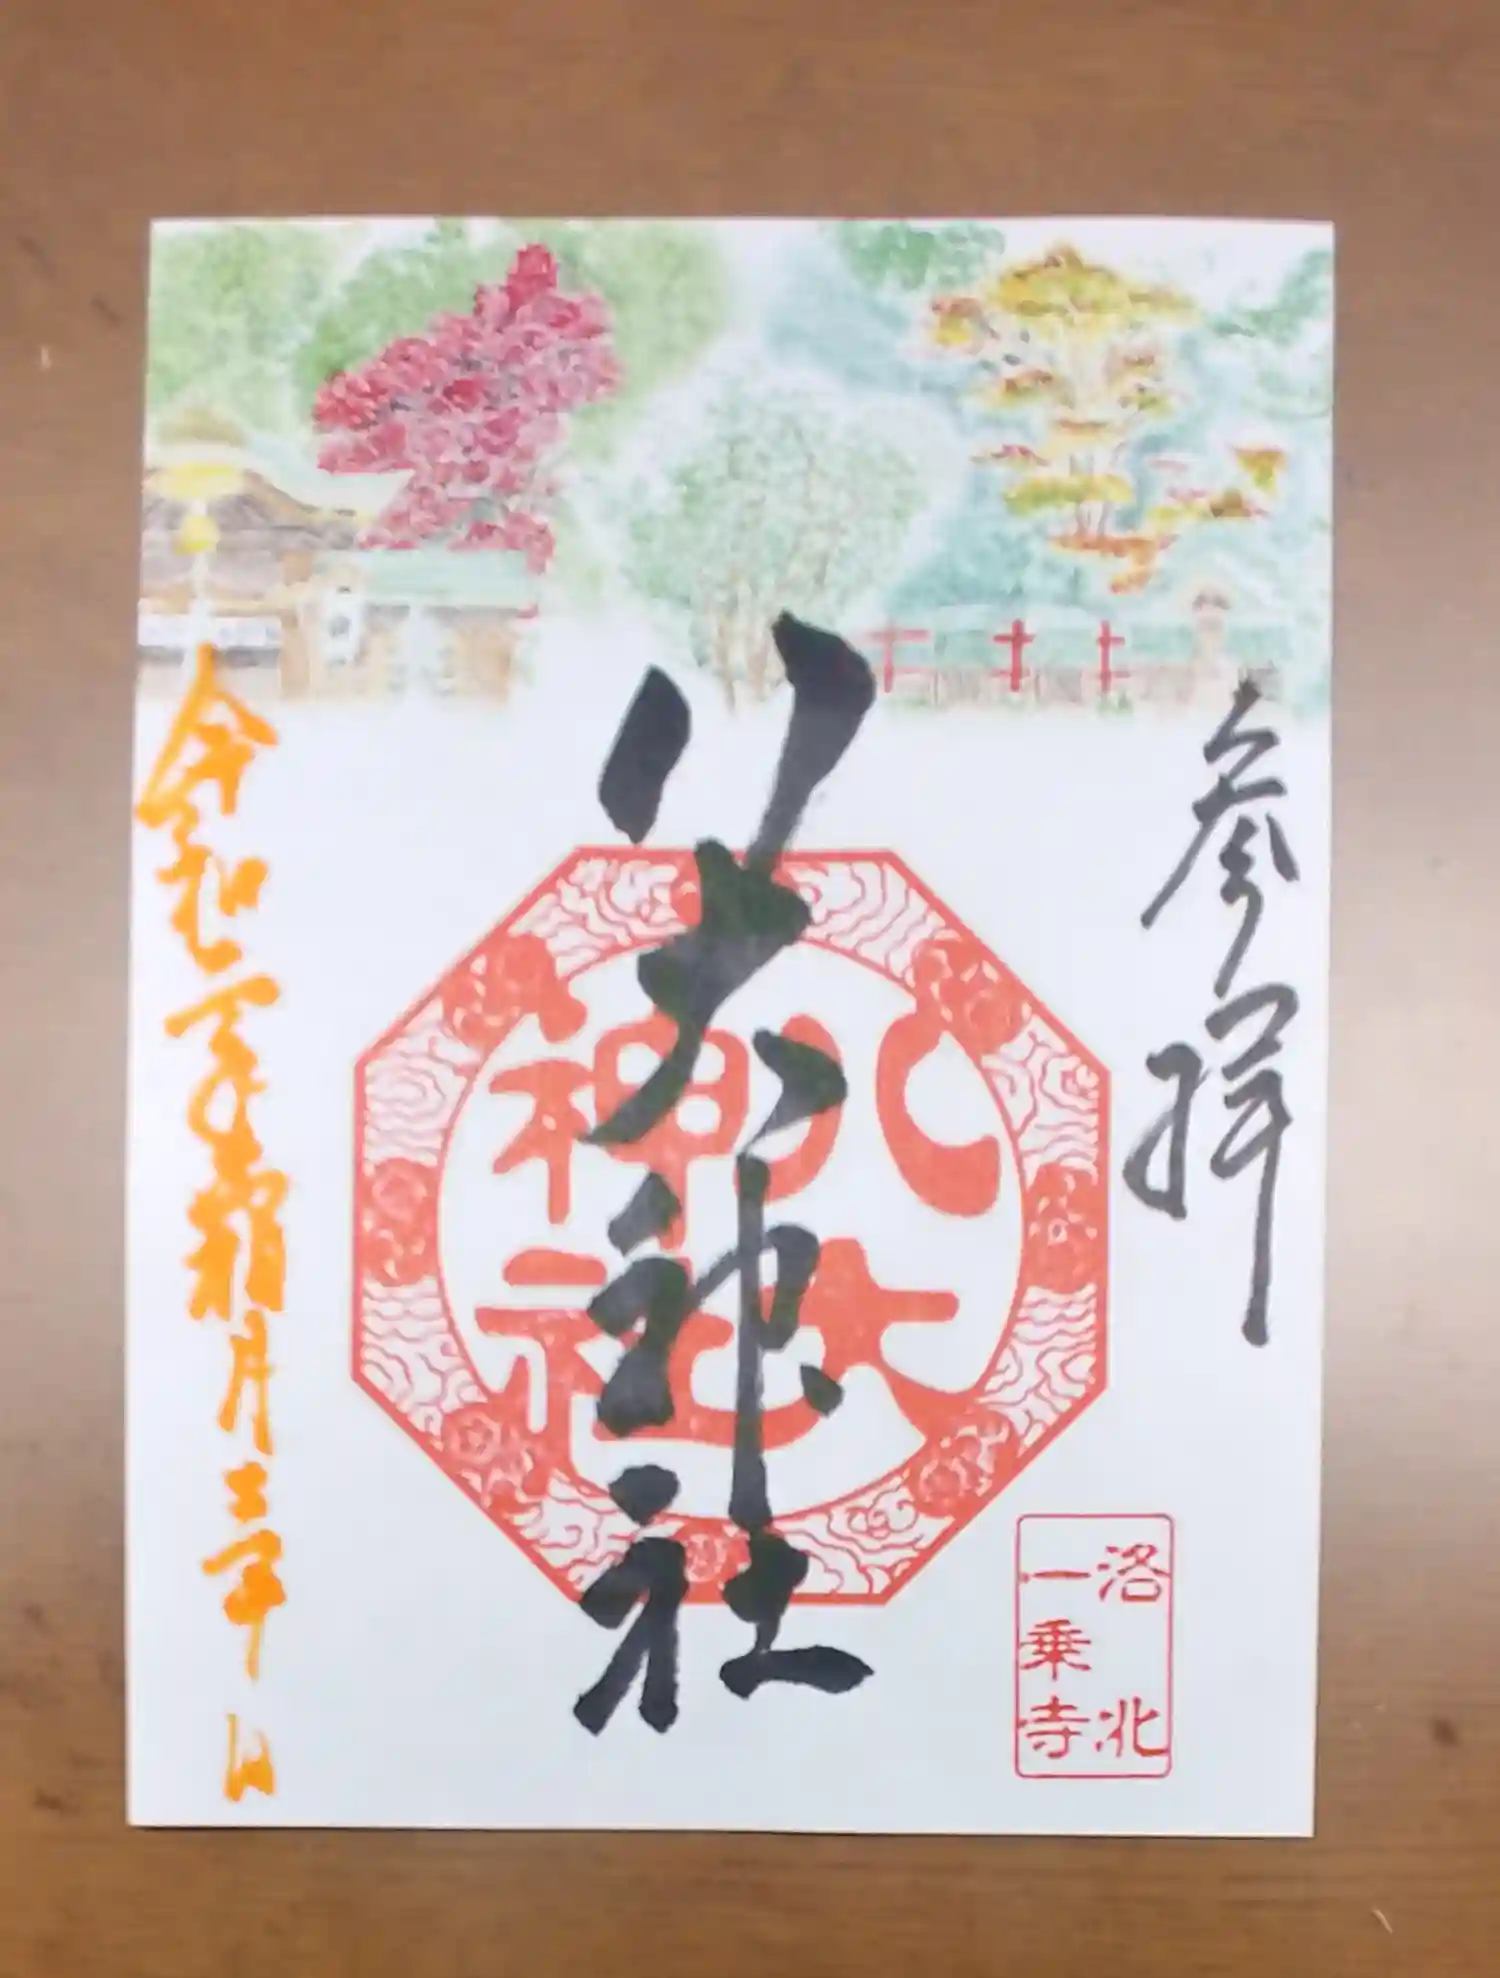 参拝
八大神社
八大
神社
洛北
一乗寺
令和二年霜月二十二日